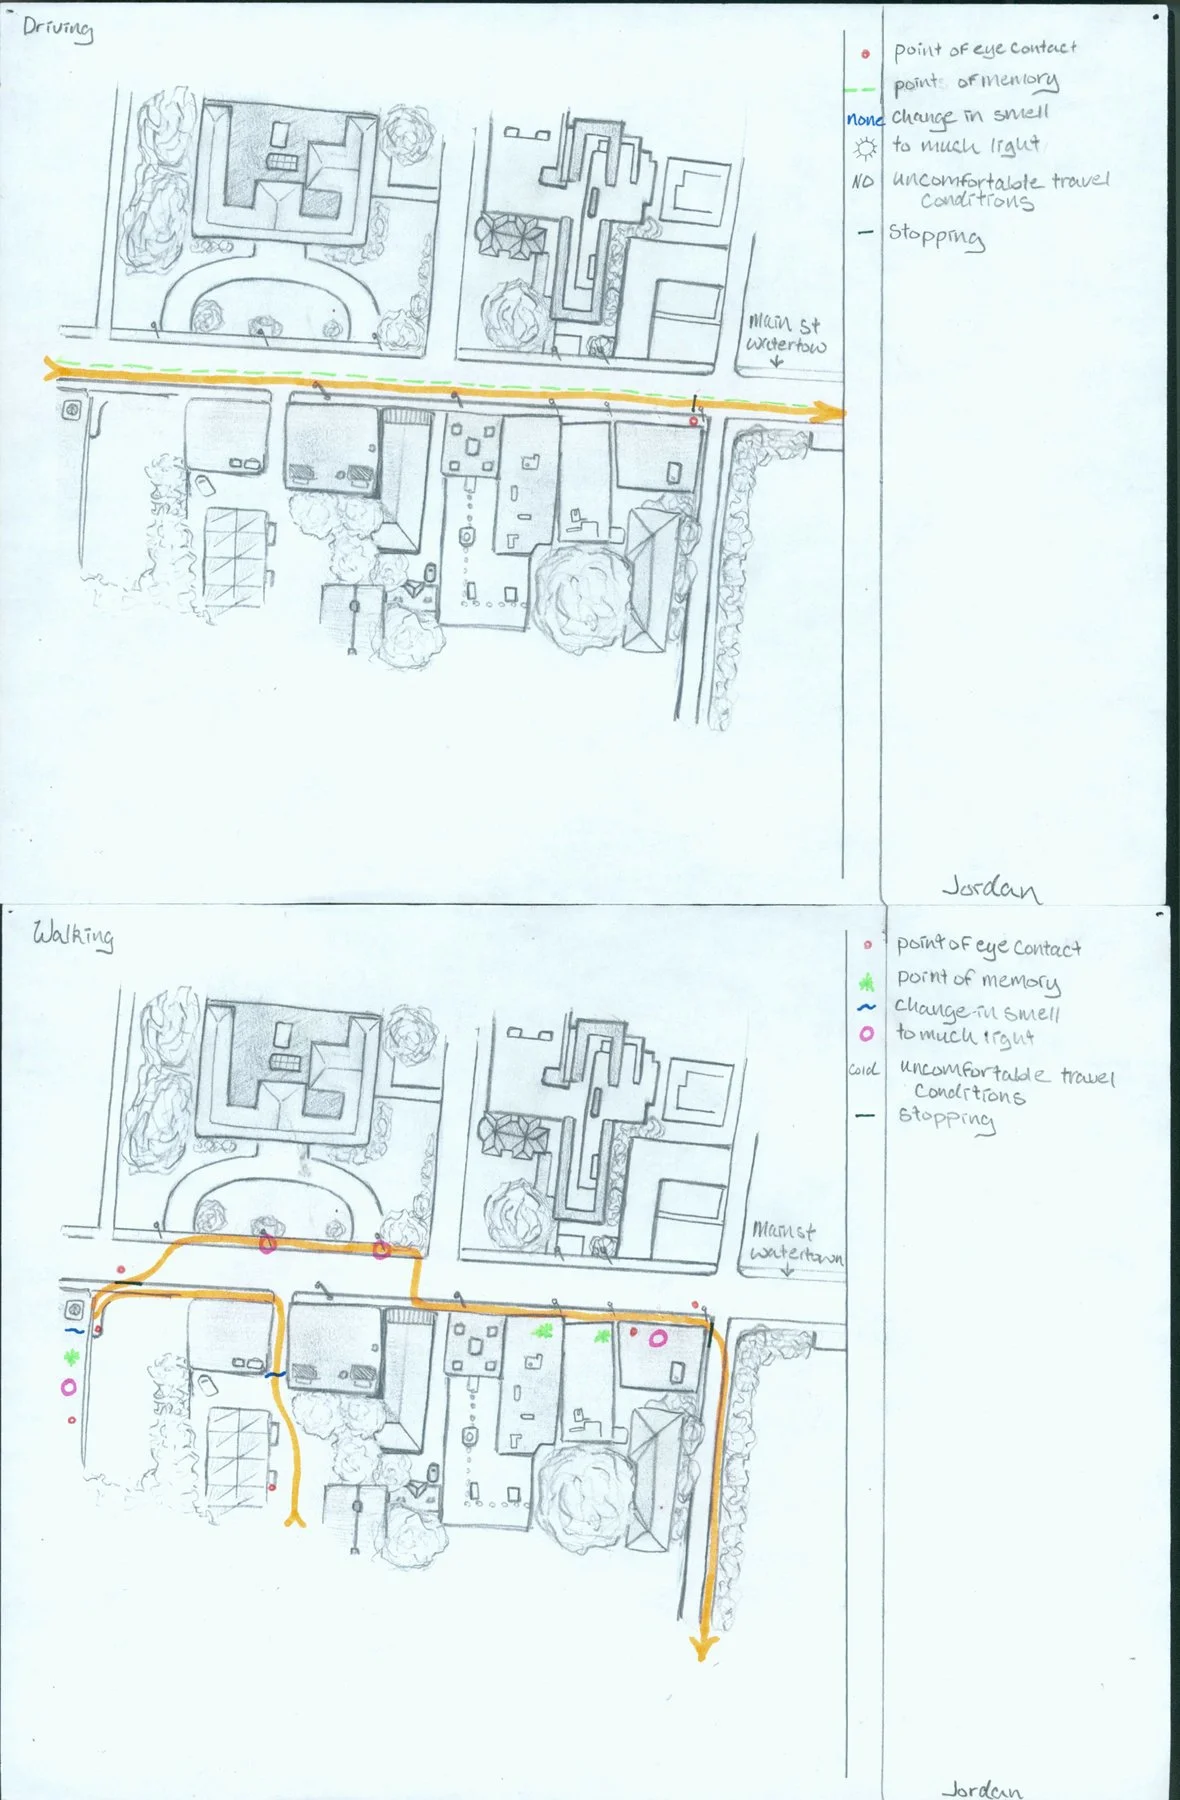 Driving
point of eye contact
points of memory
none change in smell
to much light
NO uncomfortable travel
conditions
stopping
Main st
watertow
Jordan
Walking
point of eye contact
point of memory
change in smell
to much light
cold uncomfortable travel
conditions
stopping
Main st
watertown
Jordan